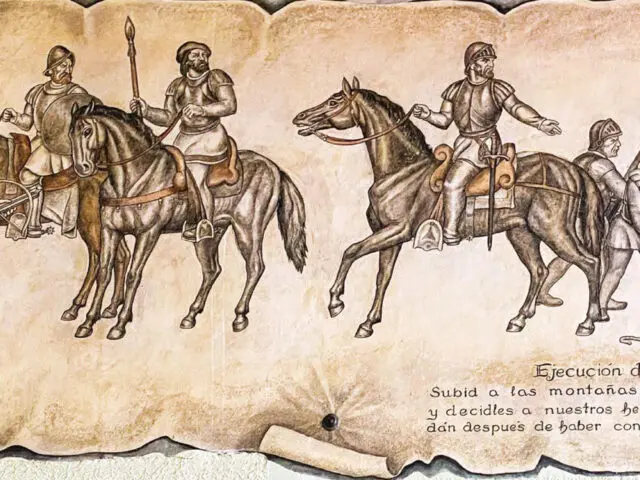 Ejecución d
Subid a las montañas
y decidles a nuestros he
dán despues de haber con